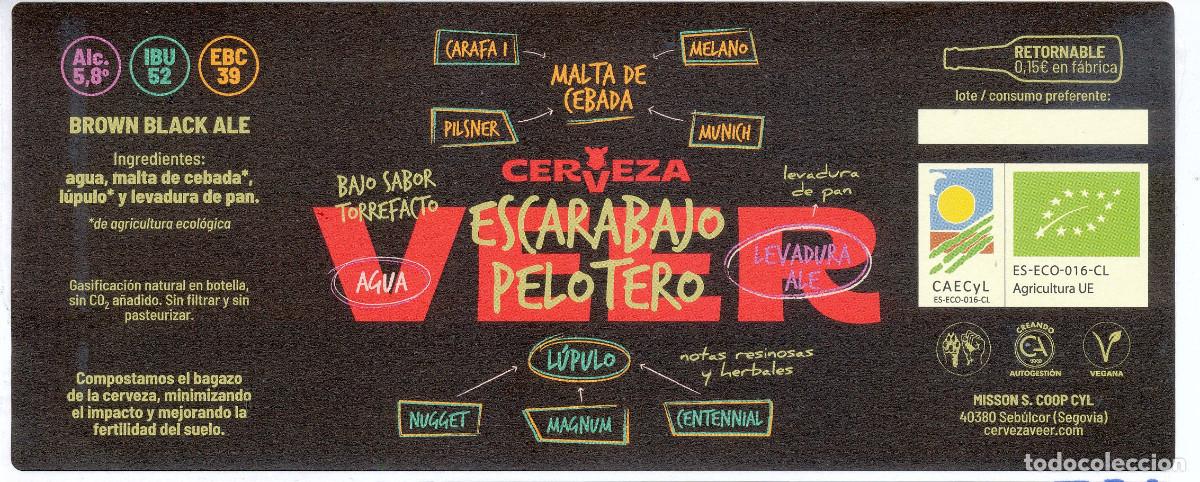 Alc.
5,8º
IBU
52
EBC
39
BROWN BLACK ALE
Ingredientes:
agua, malta de cebada*,
lúpulo* y levadura de pan.
*de agricultura ecológica
Gasificación natural en botella,
sin CO₂ añadido. Sin filtrar y sin
pasteurizar.
Compostamos el bagazo
de la cerveza, minimizando
el impacto y mejorando la
fertilidad del suelo.
CARAFA I
MELANO
MALTA DE
CEBADA
PILSNER
MUNICH
CERVEZA
VEER
ESCARABAJO
PELOTERO
BAJO SABOR
TORREFACTO
AGUA
levadura
de pan
LEVADURA
ALE
LÚPULO
notas resinosas
y herbales
NUGGET
MAGNUM
CENTENNIAL
RETORNABLE
0,15€ en fábrica
lote / consumo preferente:
CAECyL
ES-ECO-016-CL
ES-ECO-016-CL
Agricultura UE
CREANDO
AUTOGESTIÓN
VEGANA
MISSON S. COOP CYL
40380 Sebúlcor (Segovia)
cervezaveer.com
todocoleccion